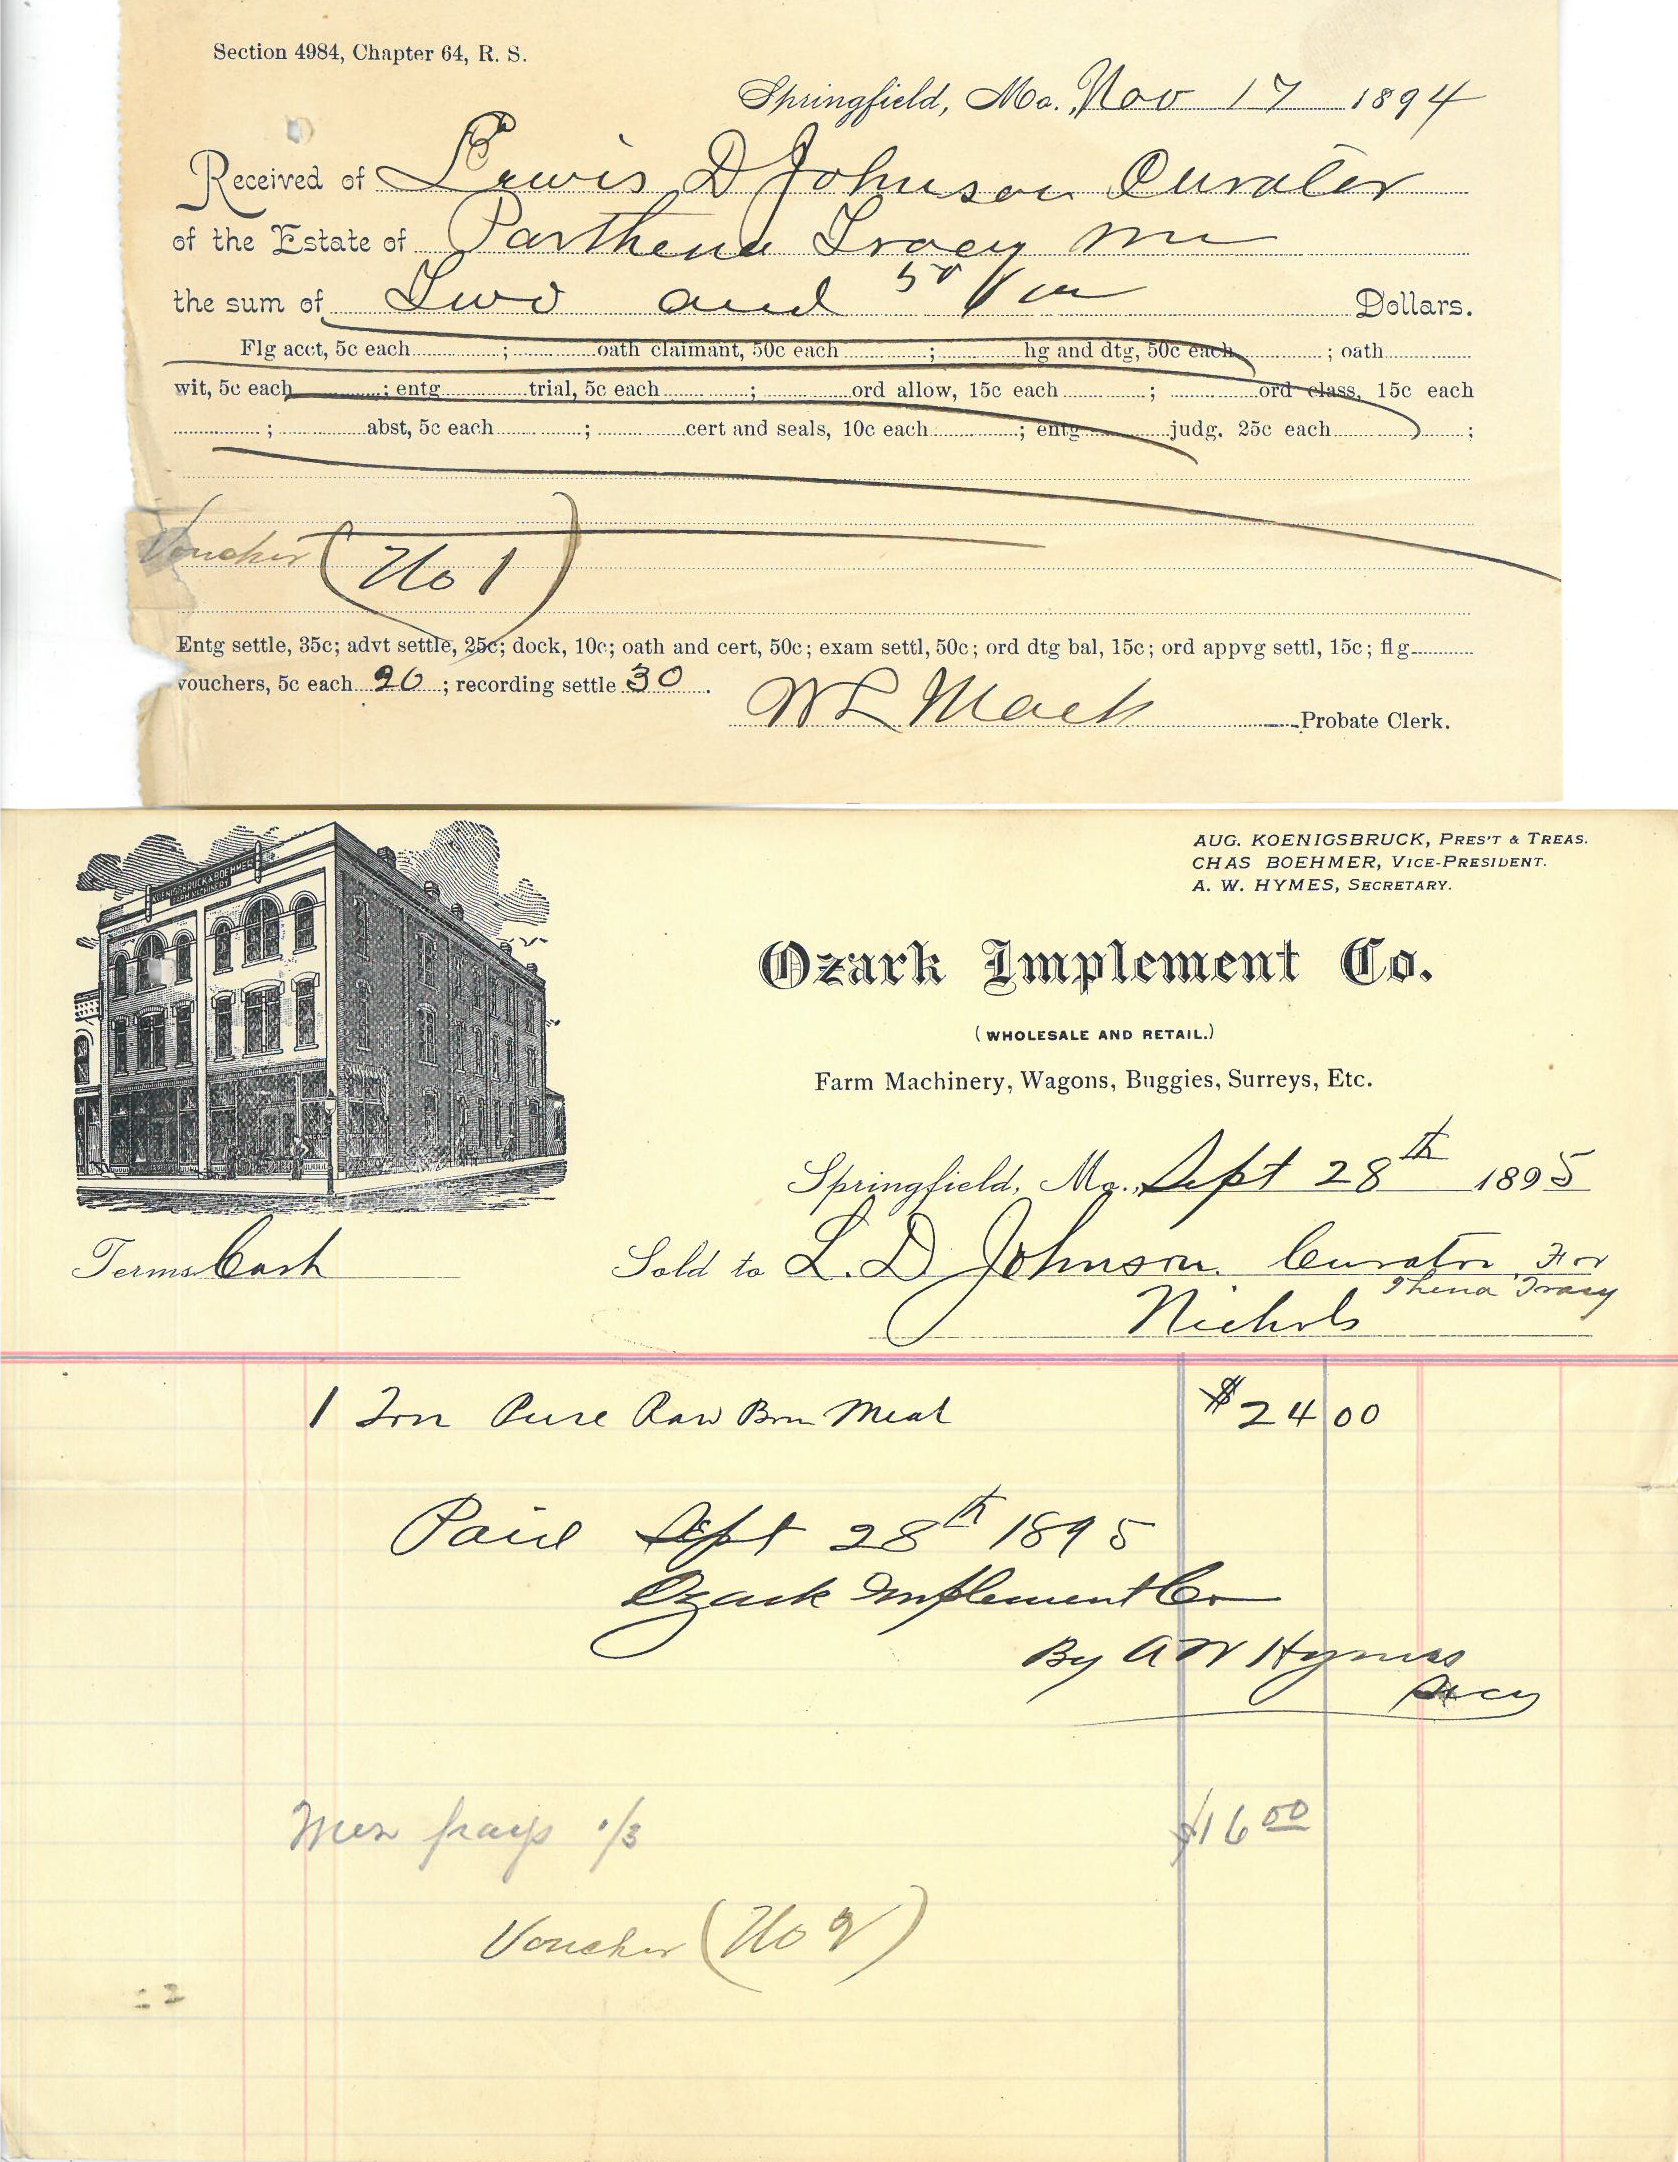 Section 4984, Chapter 64, R. S.
Springfield, Mo. Nov 17 1894
Received of Lewis D Johnson Curator
of the Estate of Parthena Tracy
the sum of Two and 50/100 Dollars.
Flg acct, 5c each ; oath claimant, 50c each ; hg and dtg, 50c each ; oath
wit, 5c each ; entg trial, 5c each ; ord allow, 15c each ; ord class, 15c each
; abst, 5c each ; cert and seals, 10c each ; entg judg. 25c each ;
Voucher (No 1)
Entg settle, 35c; advt settle, 25c; dock, 10c; oath and cert, 50c; exam settl, 50c; ord dtg bal, 15c; ord appvg settl, 15c; flg
vouchers, 5c each 20 ; recording settle 30 .
W L Mack Probate Clerk.
KOENIGSBRUCK & BOEHMER
FARM MACHINERY
AUG. KOENIGSBRUCK, PRES'T & TREAS.
CHAS BOEHMER, VICE-PRESIDENT.
A. W. HYMES, SECRETARY.
Ozark Implement Co.
(WHOLESALE AND RETAIL.)
Farm Machinery, Wagons, Buggies, Surreys, Etc.
Springfield, Mo. Sept 28th 1895
Terms Cash
Sold to L. D Johnson. Curator For
Thena Tracy
Nichols
1 Ton Pure Raw Bone Meal $24 00
Paid Sept 28th 1895
Ozark Implement Co
By A W Hymes
Secy
pays 1/3 $16 00
Voucher (No 2)